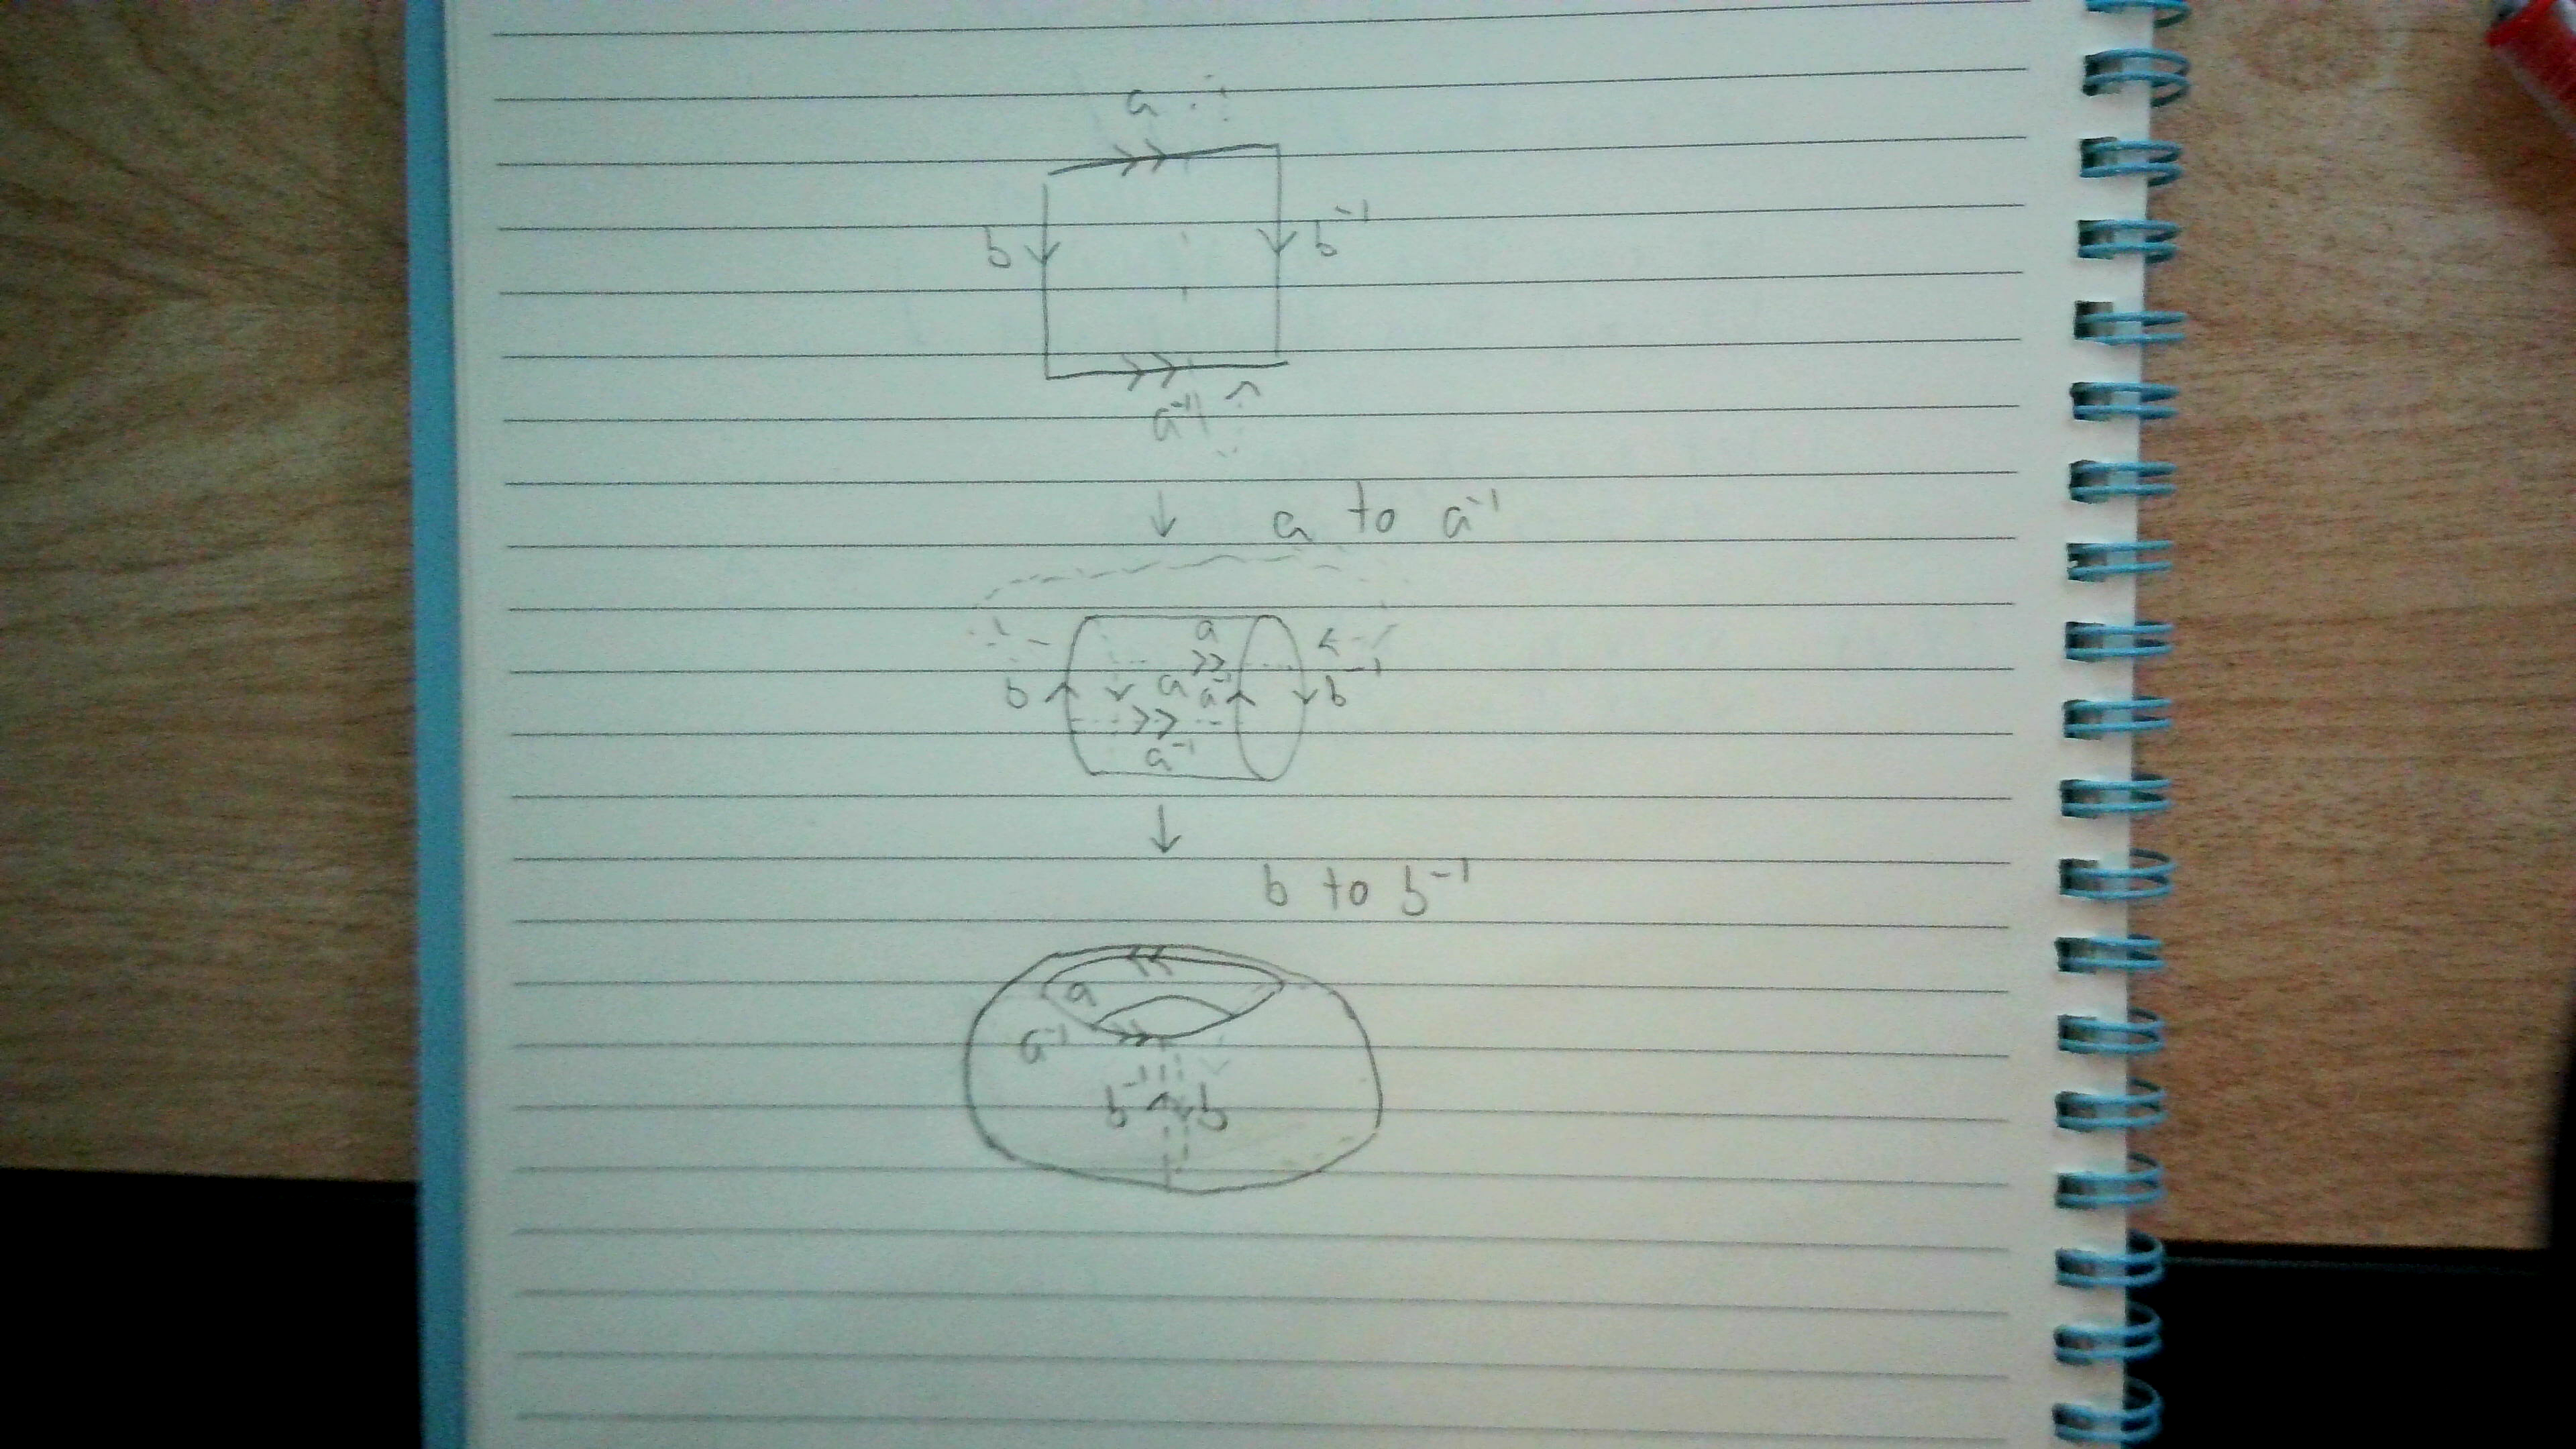 a
b b⁻¹
a⁻¹
↓ a to a⁻¹
a
b a a⁻¹ b⁻¹
a⁻¹
↓
b to b⁻¹
a
a⁻¹
b⁻¹ b